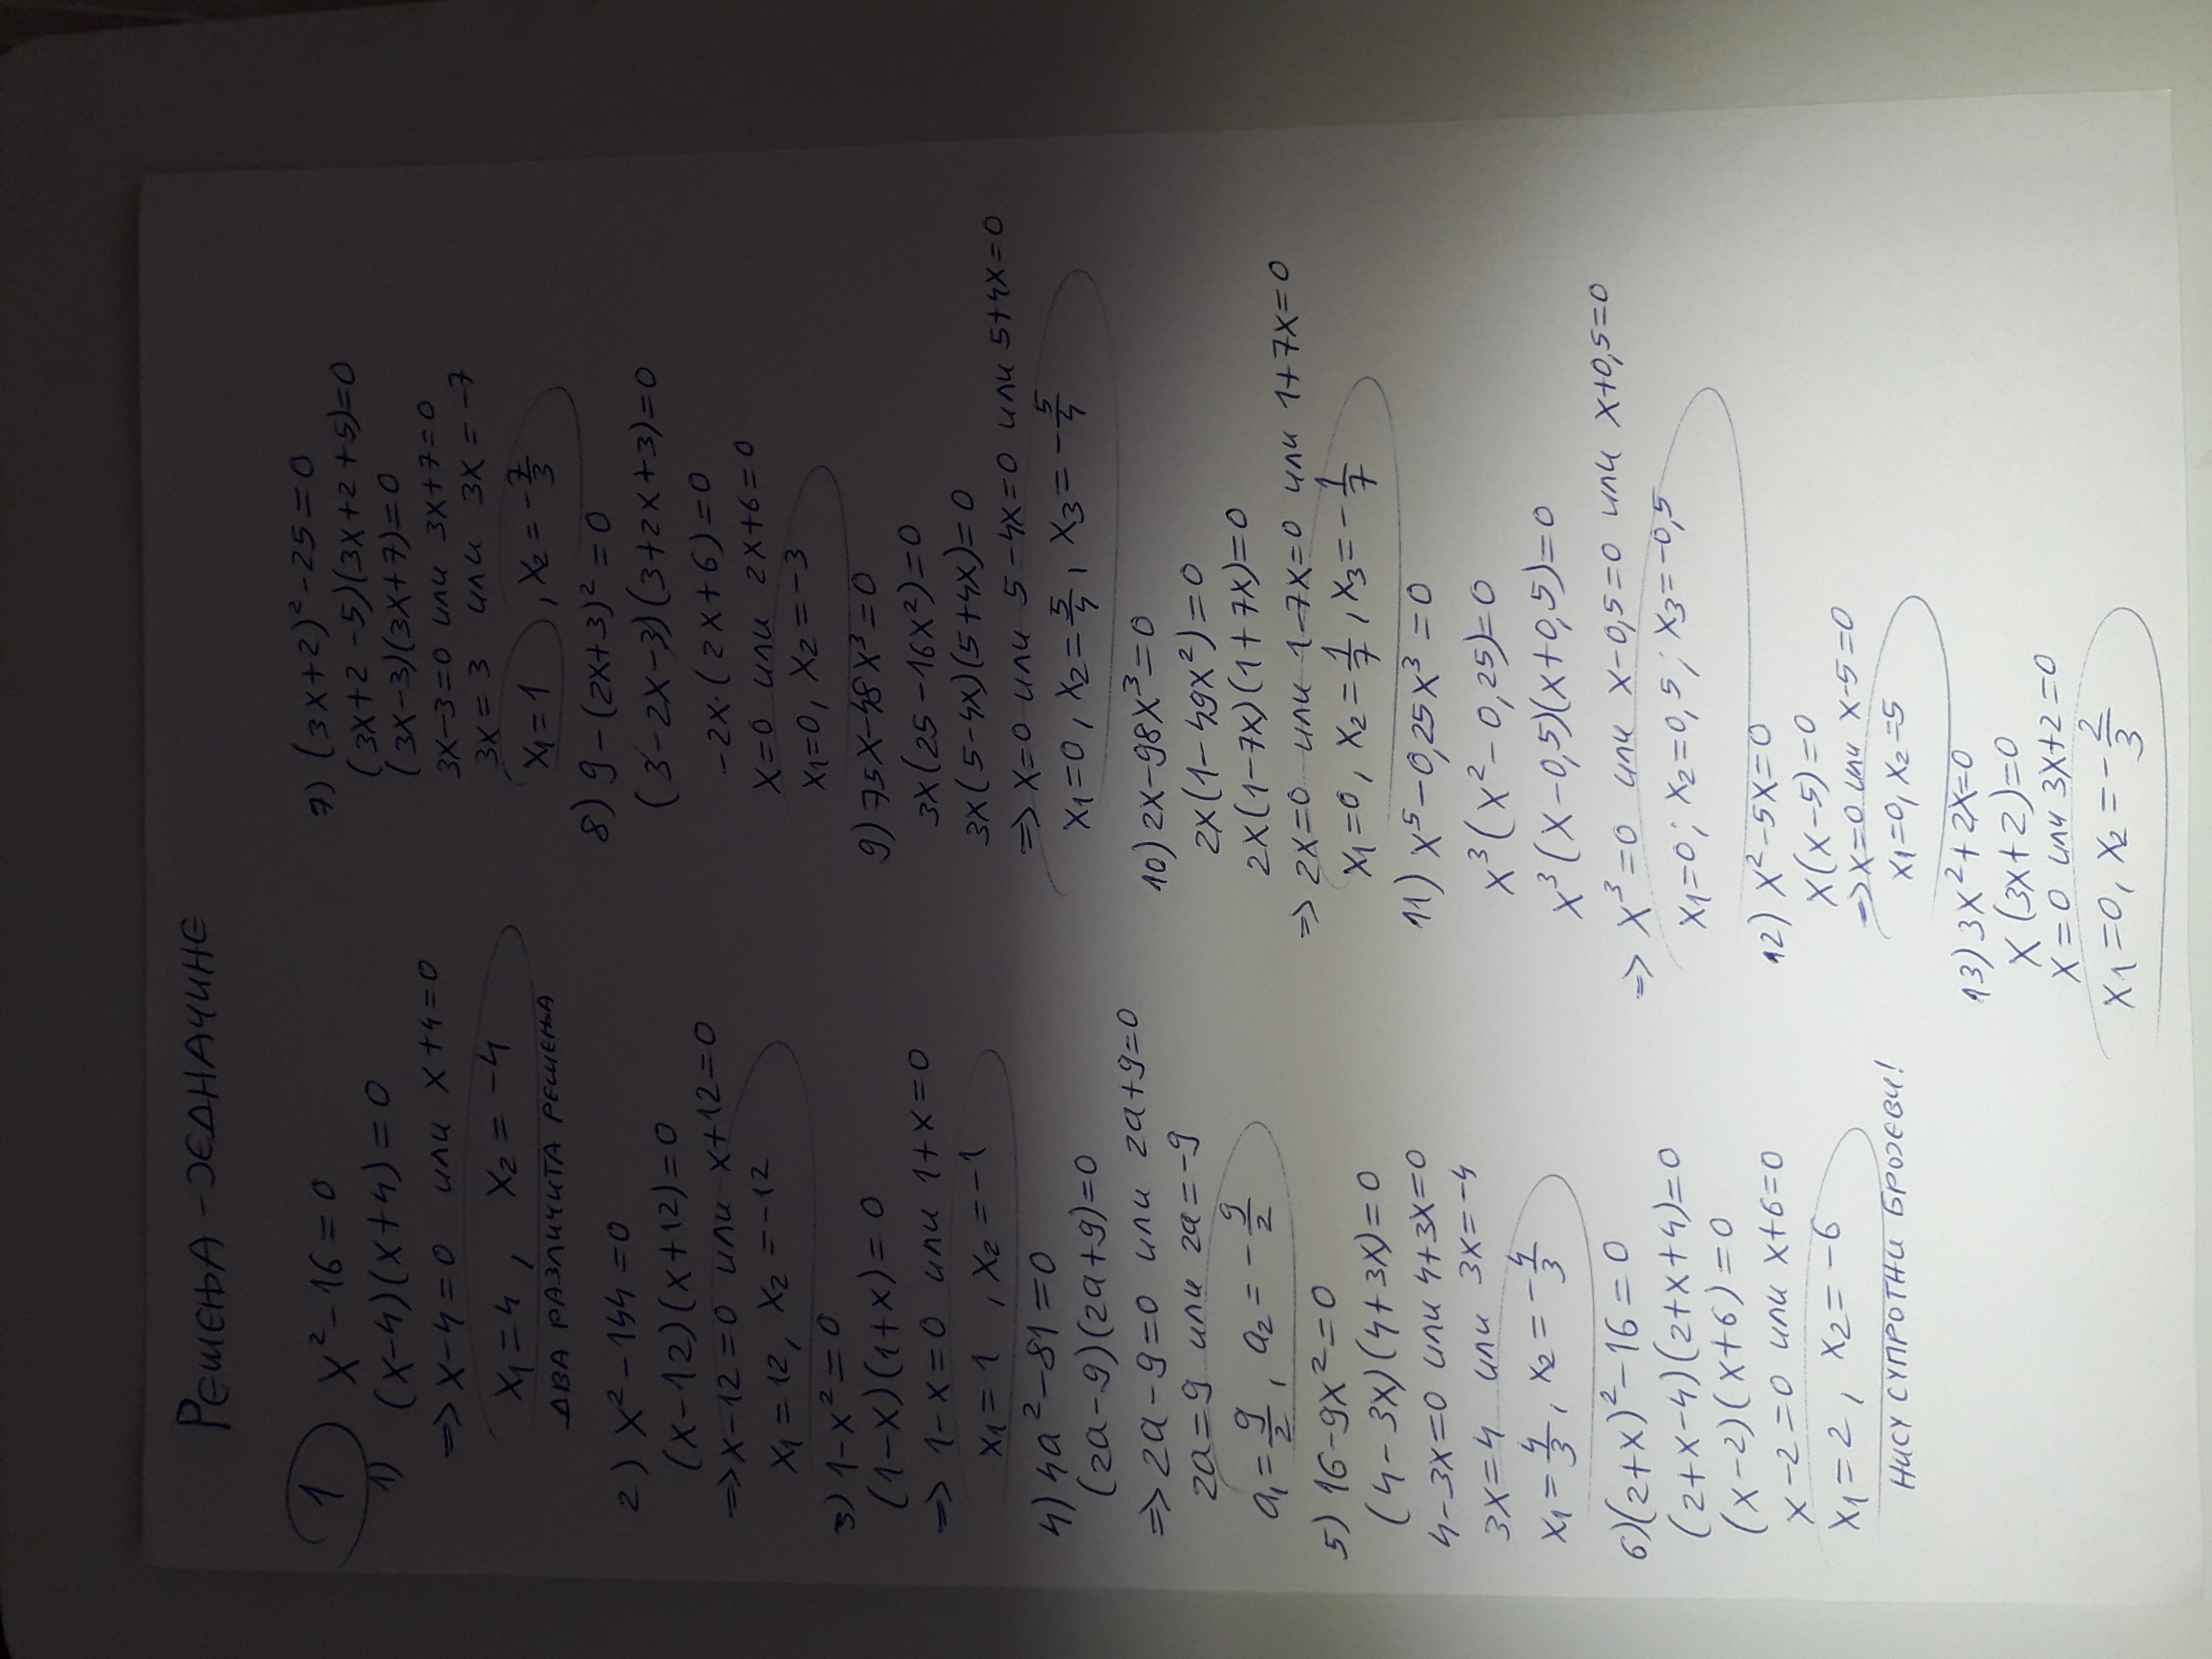 РЕШЕЊА - ЈЕДНАЧИНЕ
1
1) x² - 16 = 0
(x-4)(x+4) = 0
=> x-4=0 или x+4=0
x₁=4, x₂=-4
ДВА РАЗЛИЧИТА РЕШЕЊА
2) x² - 144 = 0
(x-12)(x+12)=0
=> x-12=0 или x+12=0
x₁=12, x₂=-12
3) 1-x²=0
(1-x)(1+x)=0
=> 1-x=0 или 1+x=0
x₁=1, x₂=-1
4) 4a²-81=0
(2a-9)(2a+9)=0
=> 2a-9=0 или 2a+9=0
2a=9 или 2a=-9
a₁=9/2, a₂=-9/2
5) 16-9x²=0
(4-3x)(4+3x)=0
4-3x=0 или 4+3x=0
3x=4 или 3x=-4
x₁=4/3, x₂=-4/3
6) (2+x)²-16=0
(2+x-4)(2+x+4)=0
(x-2)(x+6)=0
x-2=0 или x+6=0
x₁=2, x₂=-6
НИСУ СУПРОТНИ БРОЈЕВИ!
7) (3x+2)²-25=0
(3x+2-5)(3x+2+5)=0
(3x-3)(3x+7)=0
3x-3=0 или 3x+7=0
3x=3 или 3x=-7
x₁=1, x₂=-7/3
8) 9-(2x+3)²=0
(3-2x-3)(3+2x+3)=0
-2x·(2x+6)=0
x=0 или 2x+6=0
x₁=0, x₂=-3
9) 75x-48x³=0
3x(25-16x²)=0
3x(5-4x)(5+4x)=0
=> x=0 или 5-4x=0 или 5+4x=0
x₁=0, x₂=5/4, x₃=-5/4
10) 2x-98x³=0
2x(1-49x²)=0
2x(1-7x)(1+7x)=0
=> 2x=0 или 1-7x=0 или 1+7x=0
x₁=0, x₂=1/7, x₃=-1/7
11) x⁵-0,25x³=0
x³(x²-0,25)=0
x³(x-0,5)(x+0,5)=0
=> x³=0 или x-0,5=0 или x+0,5=0
x₁=0; x₂=0,5; x₃=-0,5
12) x²-5x=0
x(x-5)=0
=> x=0 или x-5=0
x₁=0, x₂=5
13) 3x²+2x=0
x(3x+2)=0
x=0 или 3x+2=0
x₁=0, x₂=-2/3